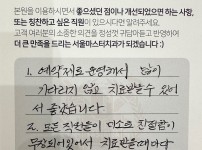 본원을 이용하시면서 좋으셨던 점이나 개선되었으면 하는 사항,
또는 칭찬하고 싶은 직원이 있으시다면 알려주세요.
고객 여러분의 소중한 의견을 정성껏 귀담아듣고 반영하여
더 큰 만족을 드리는 서울마스터치과가 되겠습니다 :)
1. 예약제로 운영해서 많이
기다리지 않고 치료받을수 있어
서 좋았습니다
2. 모든 직원분이 미소와 친절함이
치료받을때마다